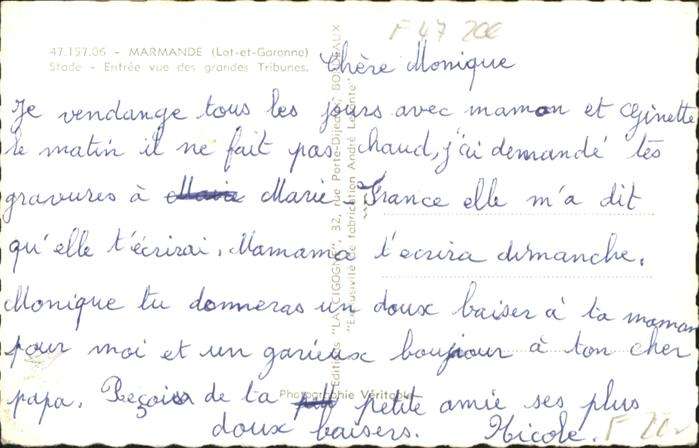 F 47 20€
47.157.06 - MARMANDE (Lot-et-Garonne)
Stade - Entrée vue des grandes Tribunes.
Chère Monique
Je vendange tous les jours avec maman et Ginette
le matin il ne fait pas chaud, j'ai demandé tes
gravures à Marie Marie-France elle m'a dit
qu'elle t'écrirai. Mamama t'ecrira dimanche.
Monique tu donneras un doux baiser à ta maman
pour moi et un garieux boujour à ton cher
papa. Reçois de ta petite amie ses plus
doux baisers. Nicole.
Editions "LA CIGOGNE", 32, rue Porte-Dijeaux BORDEAUX
"Exclusivité de fabrication André Leconte"
Photographie Véritable